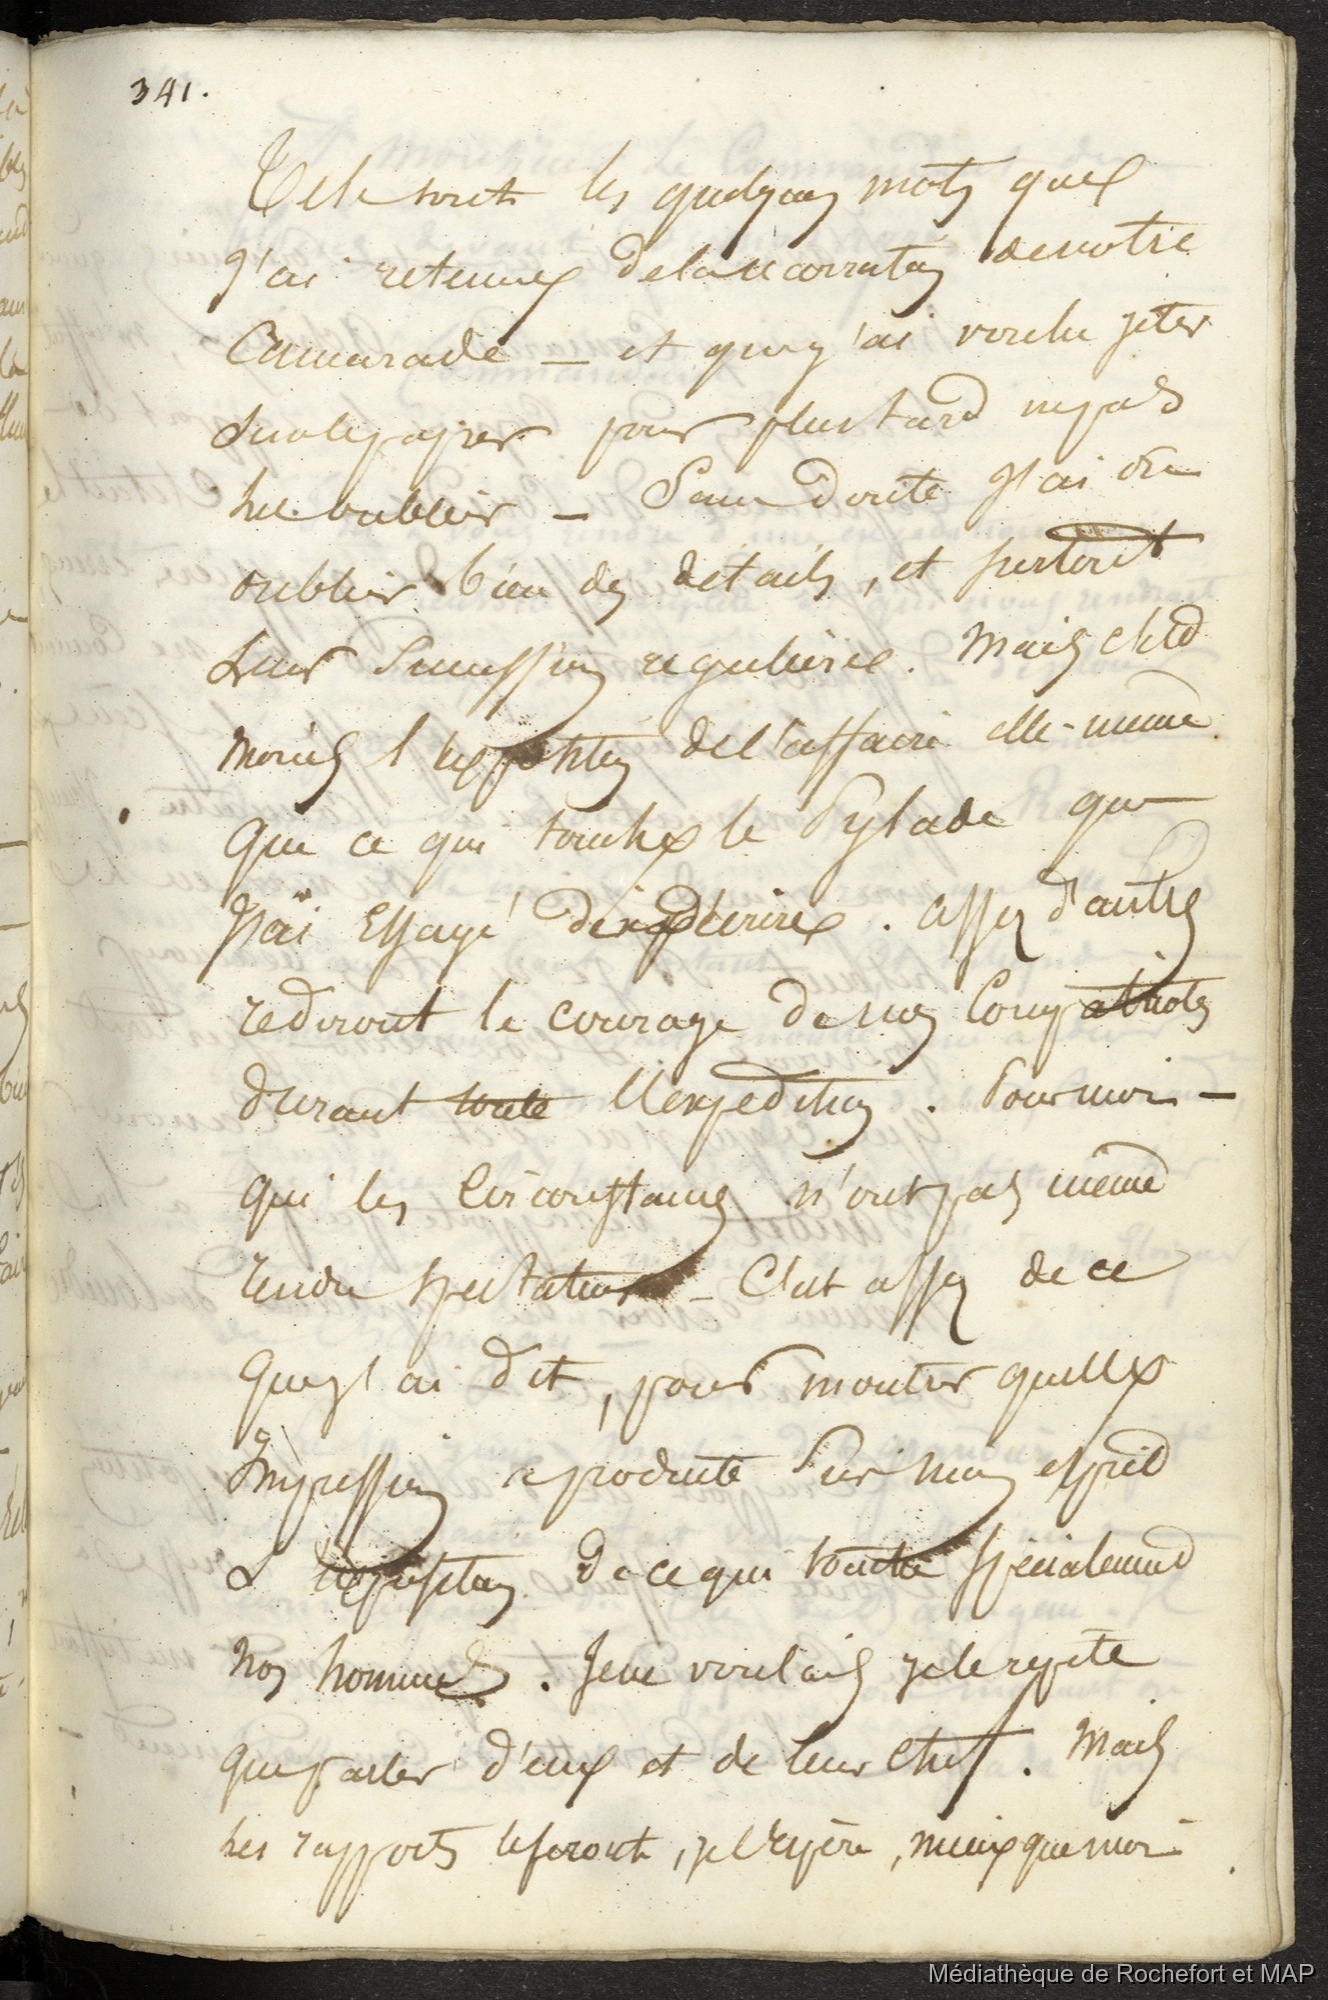 341.
Tels sont les quelques mots que
j'ai retenus de la narration de notre
Camarade — et que j'ai voulu jeter
sur le papier pour plus tard ne pas
les oublier — Sans doute j'ai du
oublier bien des details, et surtout
leur Succession reguliere. Mais c'est
moins l'exposition de l'affaire elle-meme
que ce qui touche le Pylade que
j'ai Essayé décrire. assez d'autres
rediront le courage de nos Compatriotes
durant toute l'expedition. Pour moi —
qui les Circonstances n'ont pas même
rendu spectateur — C'est assez de ce
que j'ai dit, pour montrer quelle
Impression a produite sur mon esprit
L'exposition de ce qui touche spécialement
nos hommes. Je ne voulais je le repete
que parler d'eux et de leur Chef. Mais
les rapports le feront, je l'espère, mieux que moi
Médiathèque de Rochefort et MAP